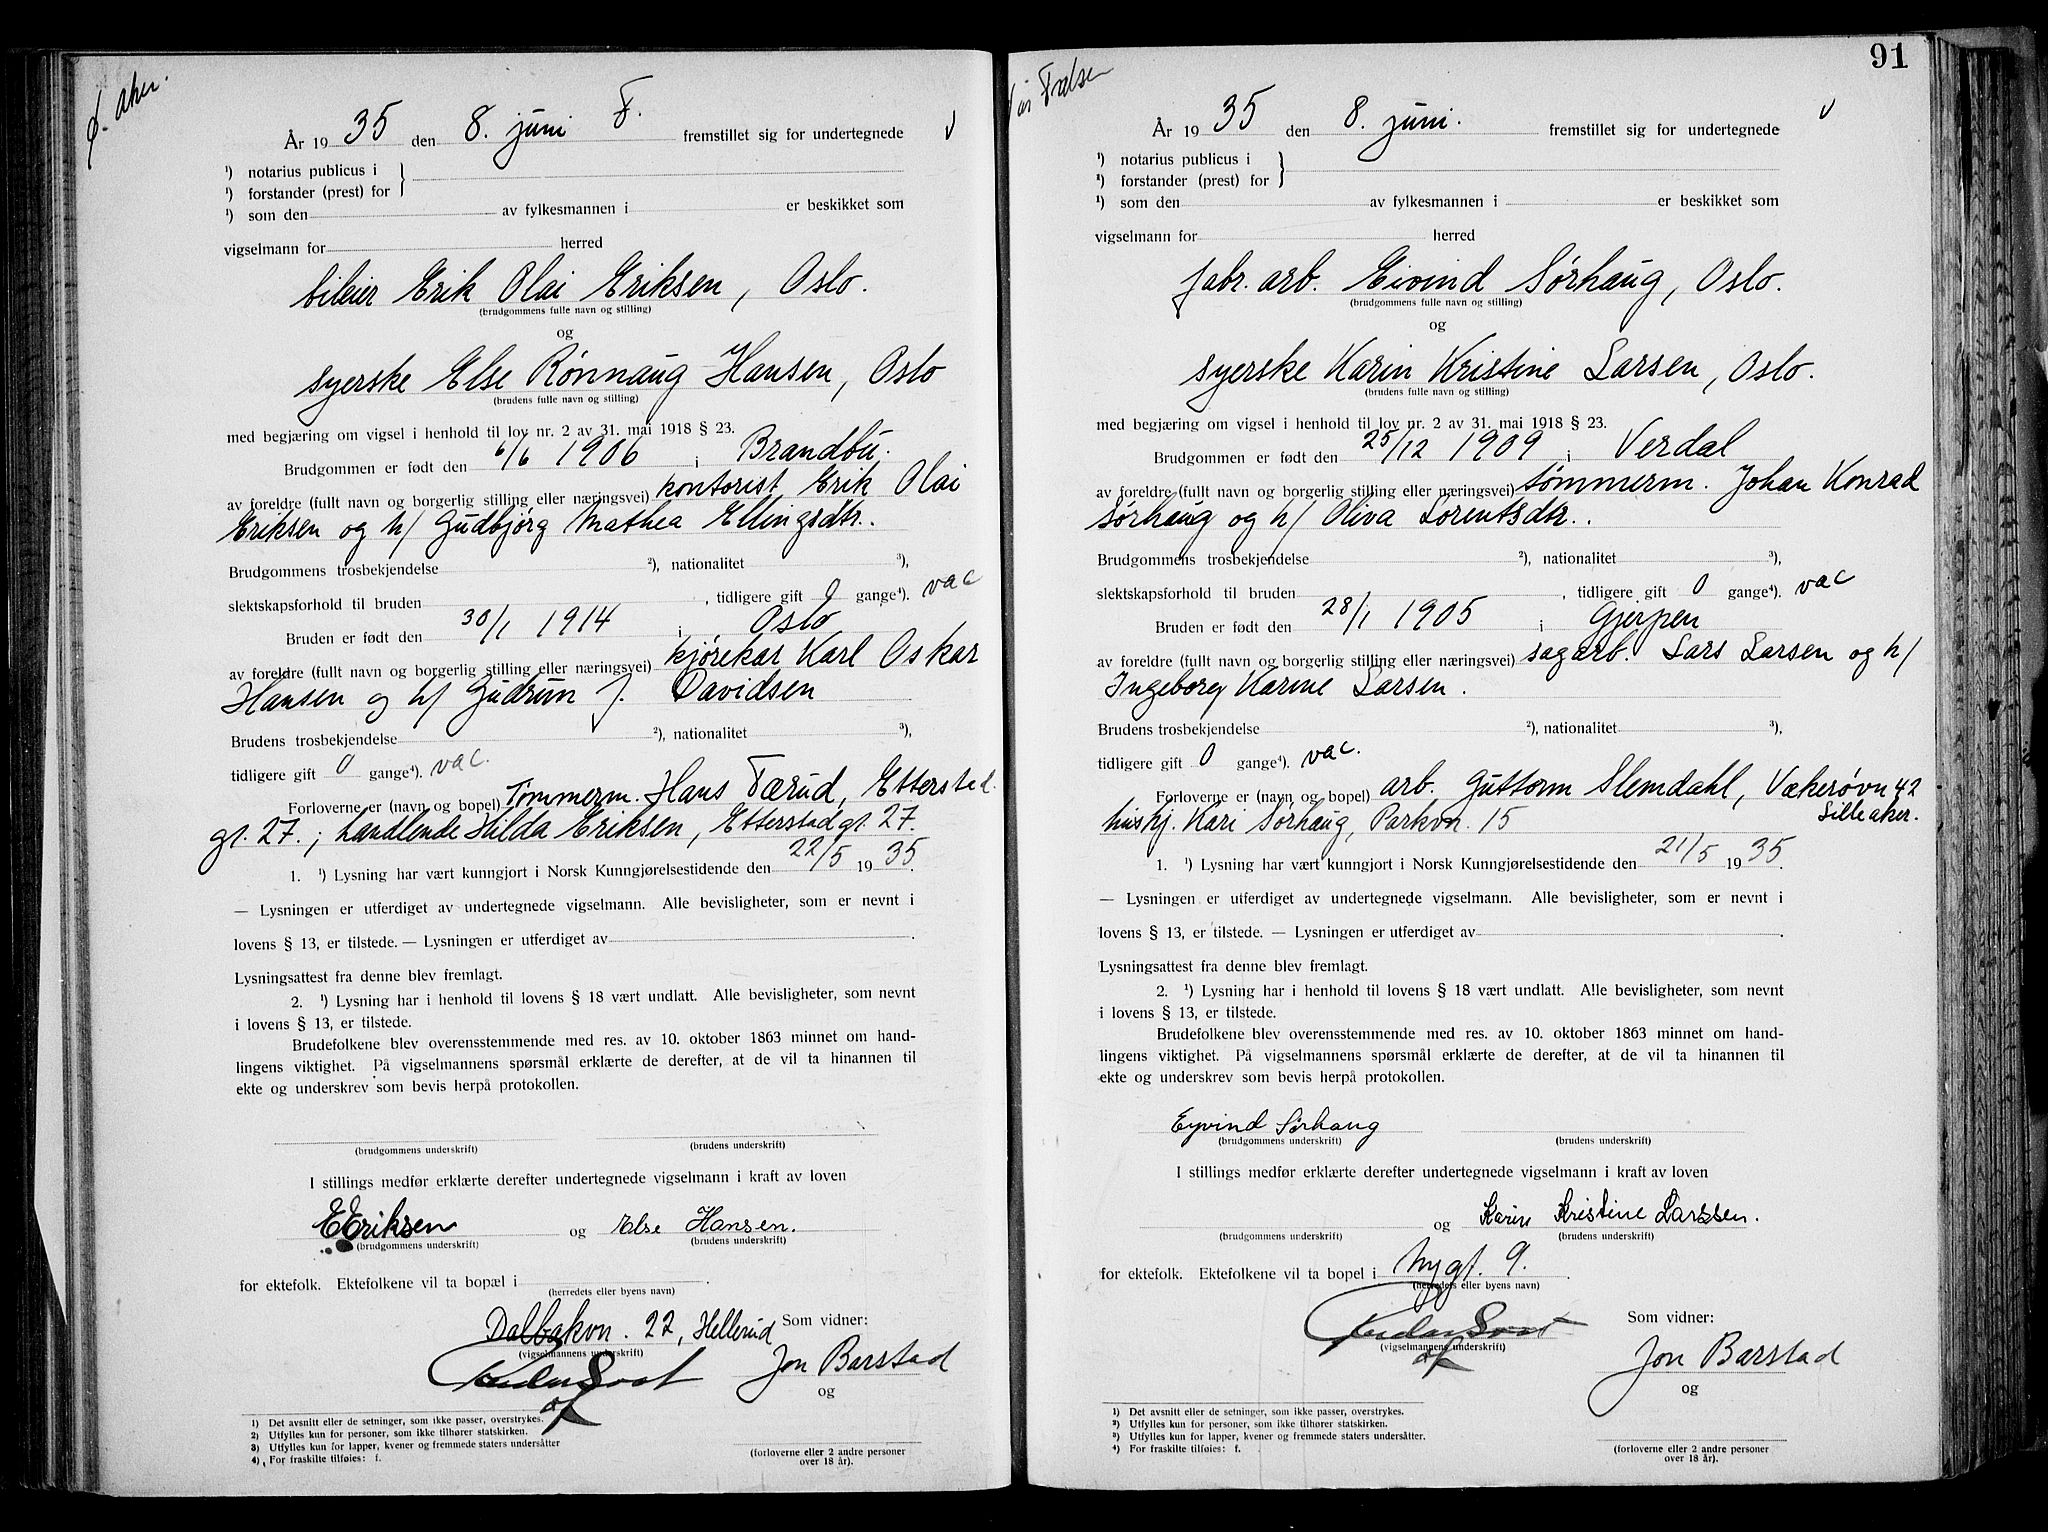 Ø. Aker.
År 19 35 den 8. juni F. fremstillet sig for undertegnede
¹) notarius publicus i
¹) forstander (prest) for
¹) som den av fylkesmannen i er beskikket som
vigselmann for herred
bileier Erik Olai Eriksen, Oslo.
(brudgommens fulle navn og stilling)
og
syerske Else Rønnaug Hansen, Oslo
(brudens fulle navn og stilling)
med begjæring om vigsel i henhold til lov nr. 2 av 31. mai 1918 § 23.
Brudgommen er født den 6/6 1906 i Brandbu.
av foreldre (fullt navn og borgerlig stilling eller næringsvei) kontorist Erik Olai
Eriksen og h/ Gudbjørg Mathea Ellingsdtr.
Brudgommens trosbekjendelse ²), nationalitet ³),
slektskapsforhold til bruden , tidligere gift 0 gange⁴). vac
Bruden er født den 30/1 1914 i Oslo
av foreldre (fullt navn og borgerlig stilling eller næringsvei) kjørekar Karl Oskar
Hansen og h/ Gudrun J. Davidsen
Brudens trosbekjendelse ²), nationalitet ³),
tidligere gift 0 gange⁴). vac.
Forloverne er (navn og bopel) Tømmerm. Hans Færud, Etterstad
gt. 27. ; handlende Hilda Eriksen, Etterstadgt. 27.
1. ¹) Lysning har vært kunngjort i Norsk Kunngjørelsestidende den 22/5 19 35.
— Lysningen er utferdiget av undertegnede vigselmann. Alle bevisligheter, som er nevnt i
lovens § 13, er tilstede. — Lysningen er utferdiget av .
Lysningsattest fra denne blev fremlagt.
2. ¹) Lysning har i henhold til lovens § 18 vært undlatt. Alle bevisligheter, som nevnt
i lovens § 13, er tilstede.
Brudefolkene blev overensstemmende med res. av 10. oktober 1863 minnet om hand-
lingens viktighet. På vigselmannens spørsmål erklærte de derefter, at de vil ta hinannen til
ekte og underskrev som bevis herpå protokollen.
(brudgommens underskrift) (brudens underskrift)
I stillings medfør erklærte derefter undertegnede vigselmann i kraft av loven
E Eriksen og Else Hansen.
(brudgommens underskrift) (brudens underskrift)
for ektefolk. Ektefolkene vil ta bopæl i .
(herredets eller byens navn)
Dalbakvn. 22, Hellerud Som vidner:
(vigselmannens underskrift)
Jon Barstad
og
1) Det avsnitt eller de setninger, som ikke passer, overstrykes.
2) Utfylles kun for personer, som ikke tilhører statskirken.
3) Utfylles kun for lapper, kvener og fremmede staters undersåtter
4) For fraskilte tilføies: f.
(forloverne eller 2 andre personer
over 18 år).
91
År 19 35 den 8. juni. fremstillet sig for undertegnede
¹) notarius publicus i
²) forstander (prest) for
¹) som den av fylkesmannen i er beskikket som
vigselmann for herred
fabr. arb. Eivind Sørhaug, Oslo.
(brudgommens fulle navn og stilling)
og
syerske Karin Kristine Larsen, Oslo.
(brudens fulle navn og stilling)
med begjæring om vigsel i henhold til lov nr. 2 av 31. mai 1918 § 23.
Brudgommen er født den 25/12 1909 i Verdal
av foreldre (fullt navn og borgerlig stilling eller næringsvei) tømmerm. Johan Konrad
Sørhaug og h/ Oliva Lorentsdtr.
Brudgommens trosbekjendelse ²), nationalitet ³),
slektskapsforhold til bruden , tidligere gift 0 gange⁴). vac
Bruden er født den 28/1 1905 i Gjerpen
av foreldre (fullt navn og borgerlig stilling eller næringsvei) sagarb. Lars Larsen og h/
Ingeborg Karine Larsen.
Brudens trosbekjendelse ²), nationalitet ³),
tidligere gift 0 gange⁴). vac.
Forloverne er (navn og bopel) arb. Guttorm Slemdahl, Vækerøvn 42
Lilleaker.
huskj. Kari Sørhaug, Parkvn. 15
1. ¹) Lysning har vært kunngjort i Norsk Kunngjørelsestidende den 21/5 19 35.
— Lysningen er utferdiget av undertegnede vigselmann. Alle bevisligheter, som er nevnt i
lovens § 13, er tilstede. — Lysningen er utferdiget av .
Lysningsattest fra denne blev fremlagt.
2. ¹) Lysning har i henhold til lovens § 18 vært undlatt. Alle bevisligheter, som nevnt
i lovens § 13, er tilstede.
Brudefolkene blev overensstemmende med res. av 10. oktober 1863 minnet om hand-
lingens viktighet. På vigselmannens spørsmål erklærte de derefter, at de vil ta hinannen til
ekte og underskrev som bevis herpå protokollen.
Eyvind Sørhaug
(brudgommens underskrift) (brudens underskrift)
I stillings medfør erklærte derefter undertegnede vigselmann i kraft av loven
og Karin Kristine Larssen.
(brudgommens underskrift) (brudens underskrift)
for ektefolk. Ektefolkene vil ta bopel i Nygt. 9.
(herredets eller byens navn)
Som vidner:
(vigselmannens underskrift)
Jon Barstad
og
¹) Det avsnitt eller de setninger, som ikke passer, overstrykes.
²) Utfylles kun for personer, som ikke tilhører statskirken.
³) Utfylles kun for lapper, kvener og fremmede staters undersåtter.
⁴) For fraskilte tilføies: f.
(forloverne eller 2 andre personer
over 18 år).